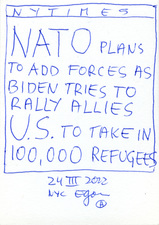 NYTIMES
NATO PLANS
TO ADD FORCES AS
BIDEN TRIES TO
RALLY ALLIES
U.S. TO TAKE IN
100,000 REFUGEES
24 III 2022
NYC